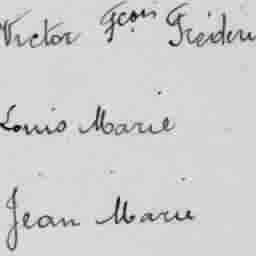 Victor Fçois Fréderi
Louis Marie
Jean Marie